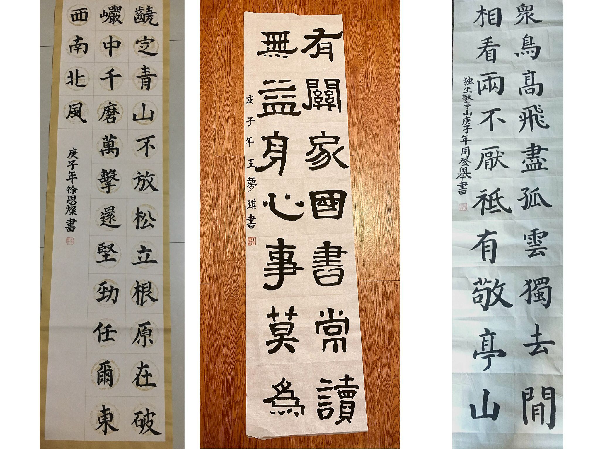 齩定青山不放松立根原在破
巖中千磨萬擊還堅勁任爾東
西南北風
庚子年徐思燦書
有關家國書常讀
無益身心事莫為
庚子年王夢琪書
眾鳥高飛盡孤雲獨去閒
相看兩不厭祗有敬亭山
独坐敬亭山庚子年周書